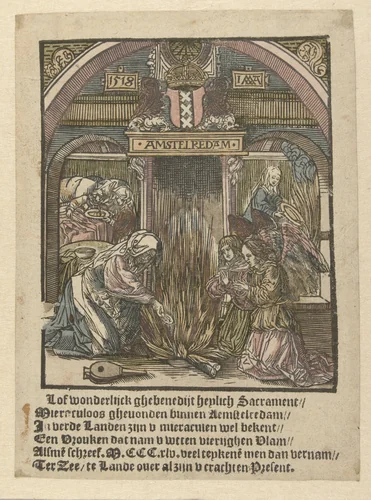 1518
IMA
· AMSTELREDAM ·
Lof wonderlijck ghebenedijt heylich Sacrament//
Miraculoos ghevonden binnen Aemstelredam//
In verde Landen zijn v miraculen wel bekent//
Een Vrouken dat nam v wtten vierighen Vlam//
Alsmē schreef. M. CCC. xlv. veel tepkenē men dan vernam//
Ter Zee/ te Lande ouer al zijn v crachten Present.